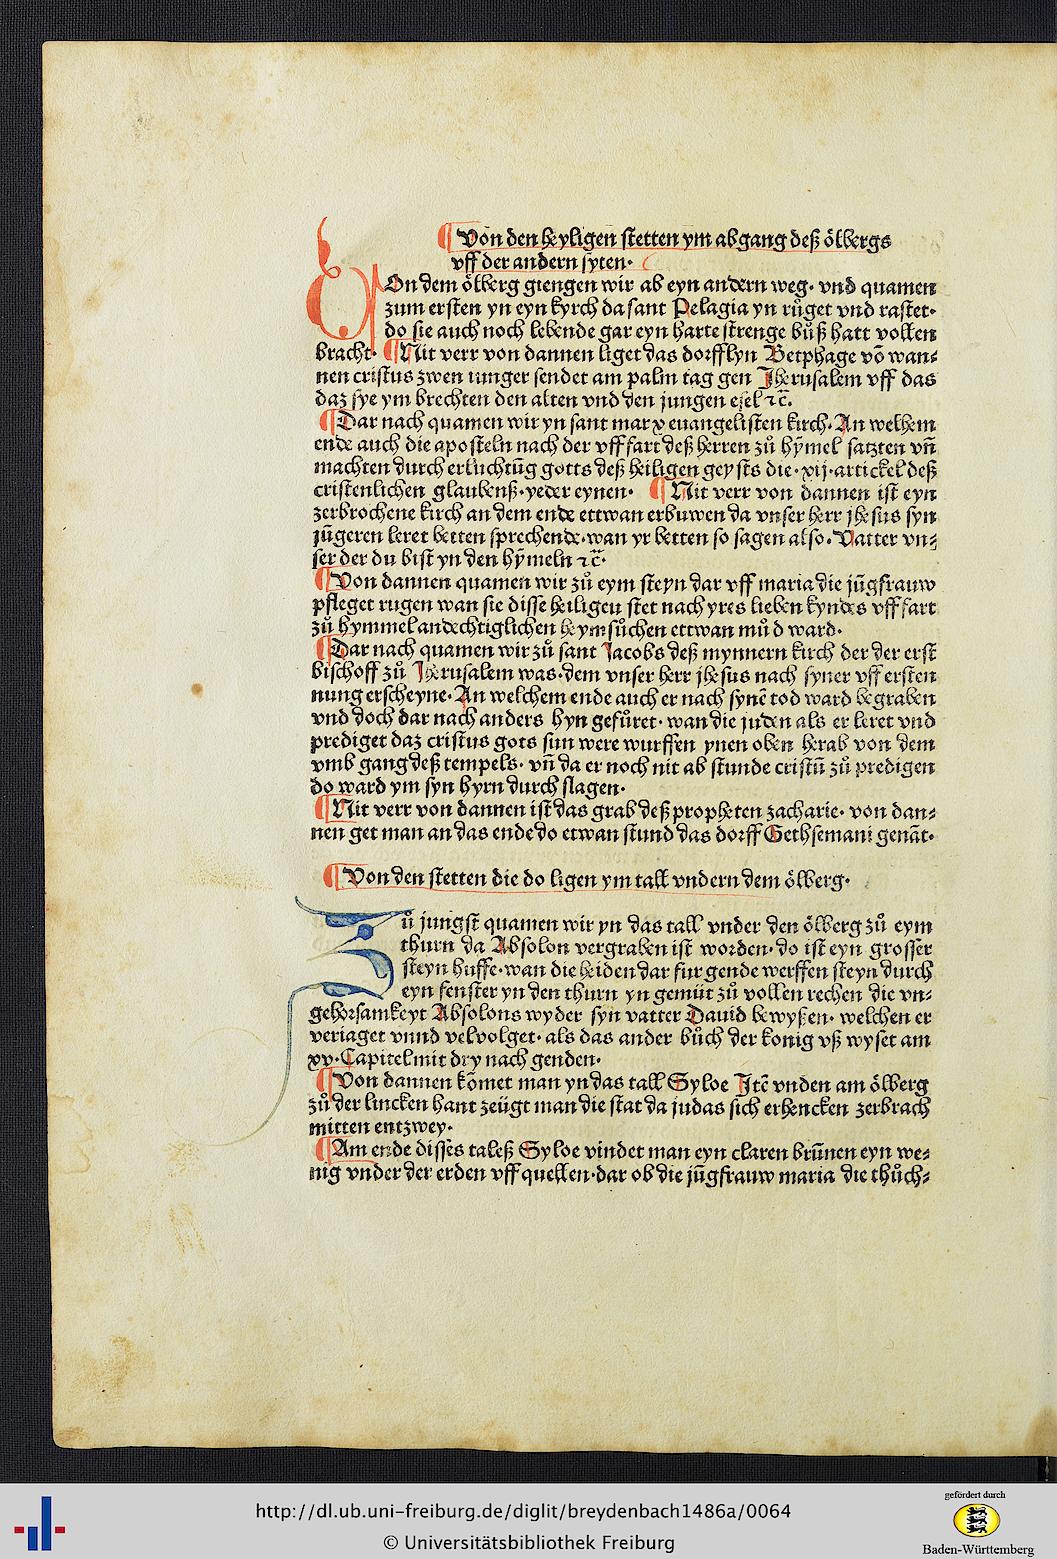 ¶ Von den heyligen stetten ym abgang deß ölbergs
vff der andern syten·
VOn dem ölberg giengen wir ab eyn andern weg· vnd quamen
zum ersten yn eyn kyrch da sant Pelagia yn růget vnd rastet·
do sie auch noch lebende gar eyn harte strenge bůß hatt vollen
bracht· ¶ Nit verr von dannen liget das dorfflyn Betphage vō wan⸗
nen cristus zwen iunger sendet am palm tag gen Jherusalem vff das
daz sye ym brechten den alten vnd den jungen esel ⁊c̄.
¶ Dar nach quamen wir yn sant marx euangelisten kirch· An welhem
ende auch die aposteln nach der vff fart deß herren zů hȳmel satzten vn̄
machten durch erluchtūg gotts deß heiligen geysts die· xij· artickel deß
cristenlichen glaubenß· yeder eynen· ¶ Nit verr von dannen ist eyn
zerbrochene kirch an dem ende ettwan erbuwen da vnser herr jhesus syn
jūgeren leret betten sprechende· wan yr betten so sagen also· Vatter vn⸗
ser der du bist yn den hȳmeln ⁊c̄·
¶ Von dannen quamen wir zů eym steyn dar vff maria die jūgfrauw
pfleget rugen wan sie disse heiligen stet nach yres lieben kyndes vff fart
zů hymmel andechtiglichen heymsůchen ettwan můd ward·
¶ Dar nach quamen wir zů sant Jacobs deß mynnern kirch der der erst
bischoff zů Jherusalem was· dem vnser herr jhesus nach syner vff ersten
nung erscheyne· An welchem ende auch er nach synē tod ward begraben
vnd doch dar nach anders hyn gefůret· wan die juden als er leret vnd
prediget daz cristus gots sun were wurffen ynen oben herab von dem
vmb gang deß tempels· vn̄ da er noch nit ab stunde cristū zů predigen
do ward ym syn hyrn durch slagen·
¶ Nit verr von dannen ist das grab deß propheten zacharie· von dan⸗
nen get man an das ende do etwan stund das dorff Gethsemani genāt·
¶ Von den stetten die do ligen ym tall vndern dem ölberg·
Zů jungst quamen wir yn das tall vnder den ölberg zů eym
thurn da Absolon vergraben ist worden· do ist eyn grosser
steyn huffe· wan die heiden dar fur gende werffen steyn durch
eyn fenster yn den thurn yn gemüt zů vollen rechen die vn⸗
gehorsamkeyt Absolons wyder syn vatter Dauid bewyßen· welchen er
veriaget vnnd velvolget· als das ander bůch der konig vß wyset am
xv· Capitel mit dry nach genden·
¶ Von dannen kōmet man yn das tall Syloe Jtē vnden am ölberg
zů der lincken hant zeügt man die stat da judas sich erhencken zerbrach
mitten entzwey·
¶ Am ende disses taleß Syloe vindet man eyn claren brūnen eyn we⸗
nig vnder der erden vff quellen· dar ob die jūgfrauw maria die thůch⸗
http://dl.ub.uni-freiburg.de/diglit/breydenbach1486a/0064
© Universitätsbibliothek Freiburg
gefördert durch
Baden-Württemberg